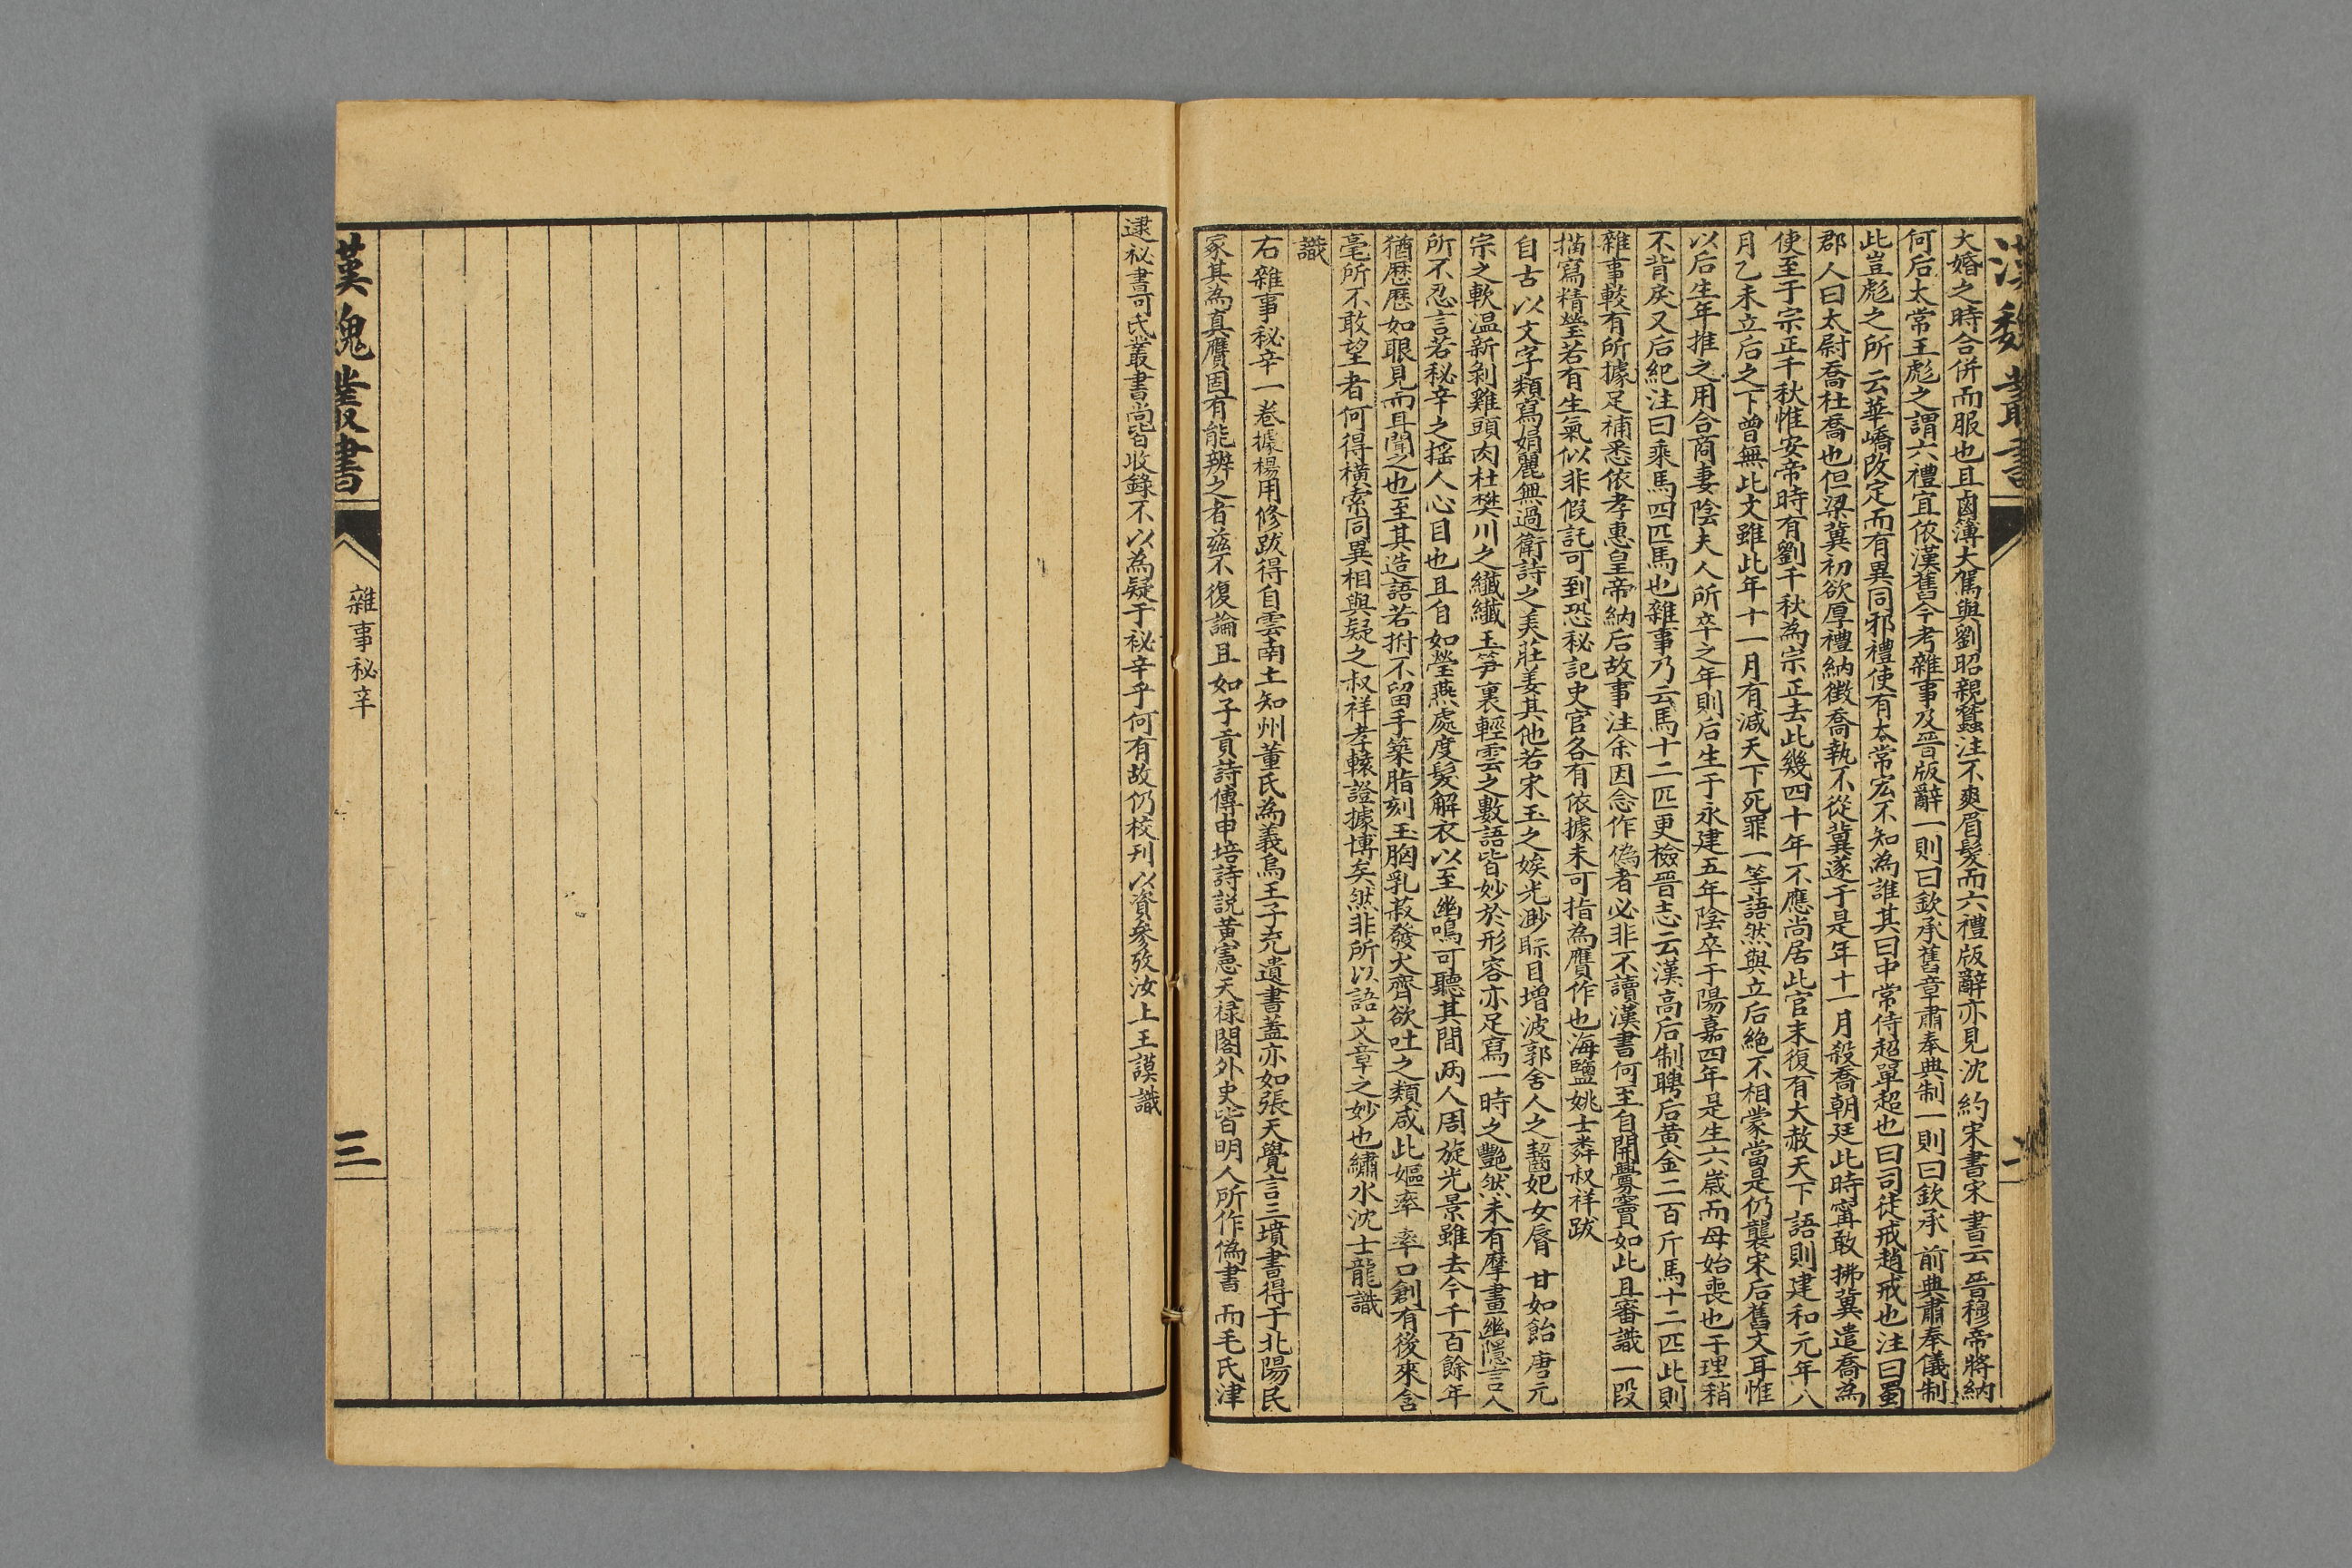 漢魏叢書
二
大婚之時合併而服也且鹵簿大駕與劉昭親蠶注不爽眉髮而六禮版辭亦見沈約宋書宋書云晉穆帝將納
何后太常王彪之謂六禮宜依漢舊今考雜事及晉版辭一則曰欽承舊章肅奉典制一則曰欽承前典肅奉儀制
此豈彪之所云華嶠改定而有異同邪禮使有太常宏不知為誰其曰中常侍超單超也曰司徒戒趙戒也注曰蜀
郡人曰太尉喬杜喬也但梁冀初欲厚禮納徵喬執不從冀遂于是年十一月殺喬朝廷此時甯敢拂冀遣喬為
使至于宗正千秋惟安帝時有劉千秋為宗正去此幾四十年不應尚居此官末復有大赦天下語則建和元年八
月乙未立后之下曾無此文雖此年十一月有減天下死罪一等語然與立后絶不相蒙當是仍襲宋后舊文耳惟
以后生年推之用合商妻陰夫人所卒之年則后生于永建五年陰卒于陽嘉四年是生六歲而母始喪也于理稍
不背戾又后紀注曰乘馬四匹馬也雜事乃云馬十二匹更檢晉志云漢高后制聘后黄金二百斤馬十二匹此則
雜事較有所據足補悉依孝惠皇帝納后故事注余因念作偽者必非不讀漢書何至自開釁竇如此且審識一段
描寫精瑩若有生氣似非假託可到恐秘記史官各有依據未可指為贋作也海鹽姚士粦叔祥跋
自古以文字類寫娟麗無過衛詩之美莊姜其他若宋玉之娭光渺眎目增波郭舍人之齧妃女脣甘如飴唐元
宗之軟温新剝雞頭肉杜樊川之纖纖玉笋裹輕雲之數語皆妙於形容亦足寫一時之艷然未有摩畫幽隱言人
所不忍言若秘辛之摇人心目也且自如瑩燕處度髮解衣以至幽鳴可聽其間兩人周旋光景雖去今千百餘年
猶歷歷如眼見而耳聞之也至其造語若拊不留手築脂刻玉胸乳菽發火齊欲吐之類咸此嫗率率口創有後來含
毫所不敢望者何得横索同異相與疑之叔祥考轅證據博矣然非所以語文章之妙也繡水沈士龍識
識
右雜事秘辛一卷據楊用修跋得自雲南土知州董氏為義烏王子充遺書蓋亦如張天覺言三墳書得于北陽民
家其為真贋固有能辨之者兹不復論且如子貢詩傳申培詩説黄憲天禄閣外史皆明人所作偽書而毛氏津
逮秘書可氏叢書尚皆收錄不以為疑于秘辛乎何有故仍校刊以資參攷汝上王謨識
漢魏叢書
雜事秘辛
三